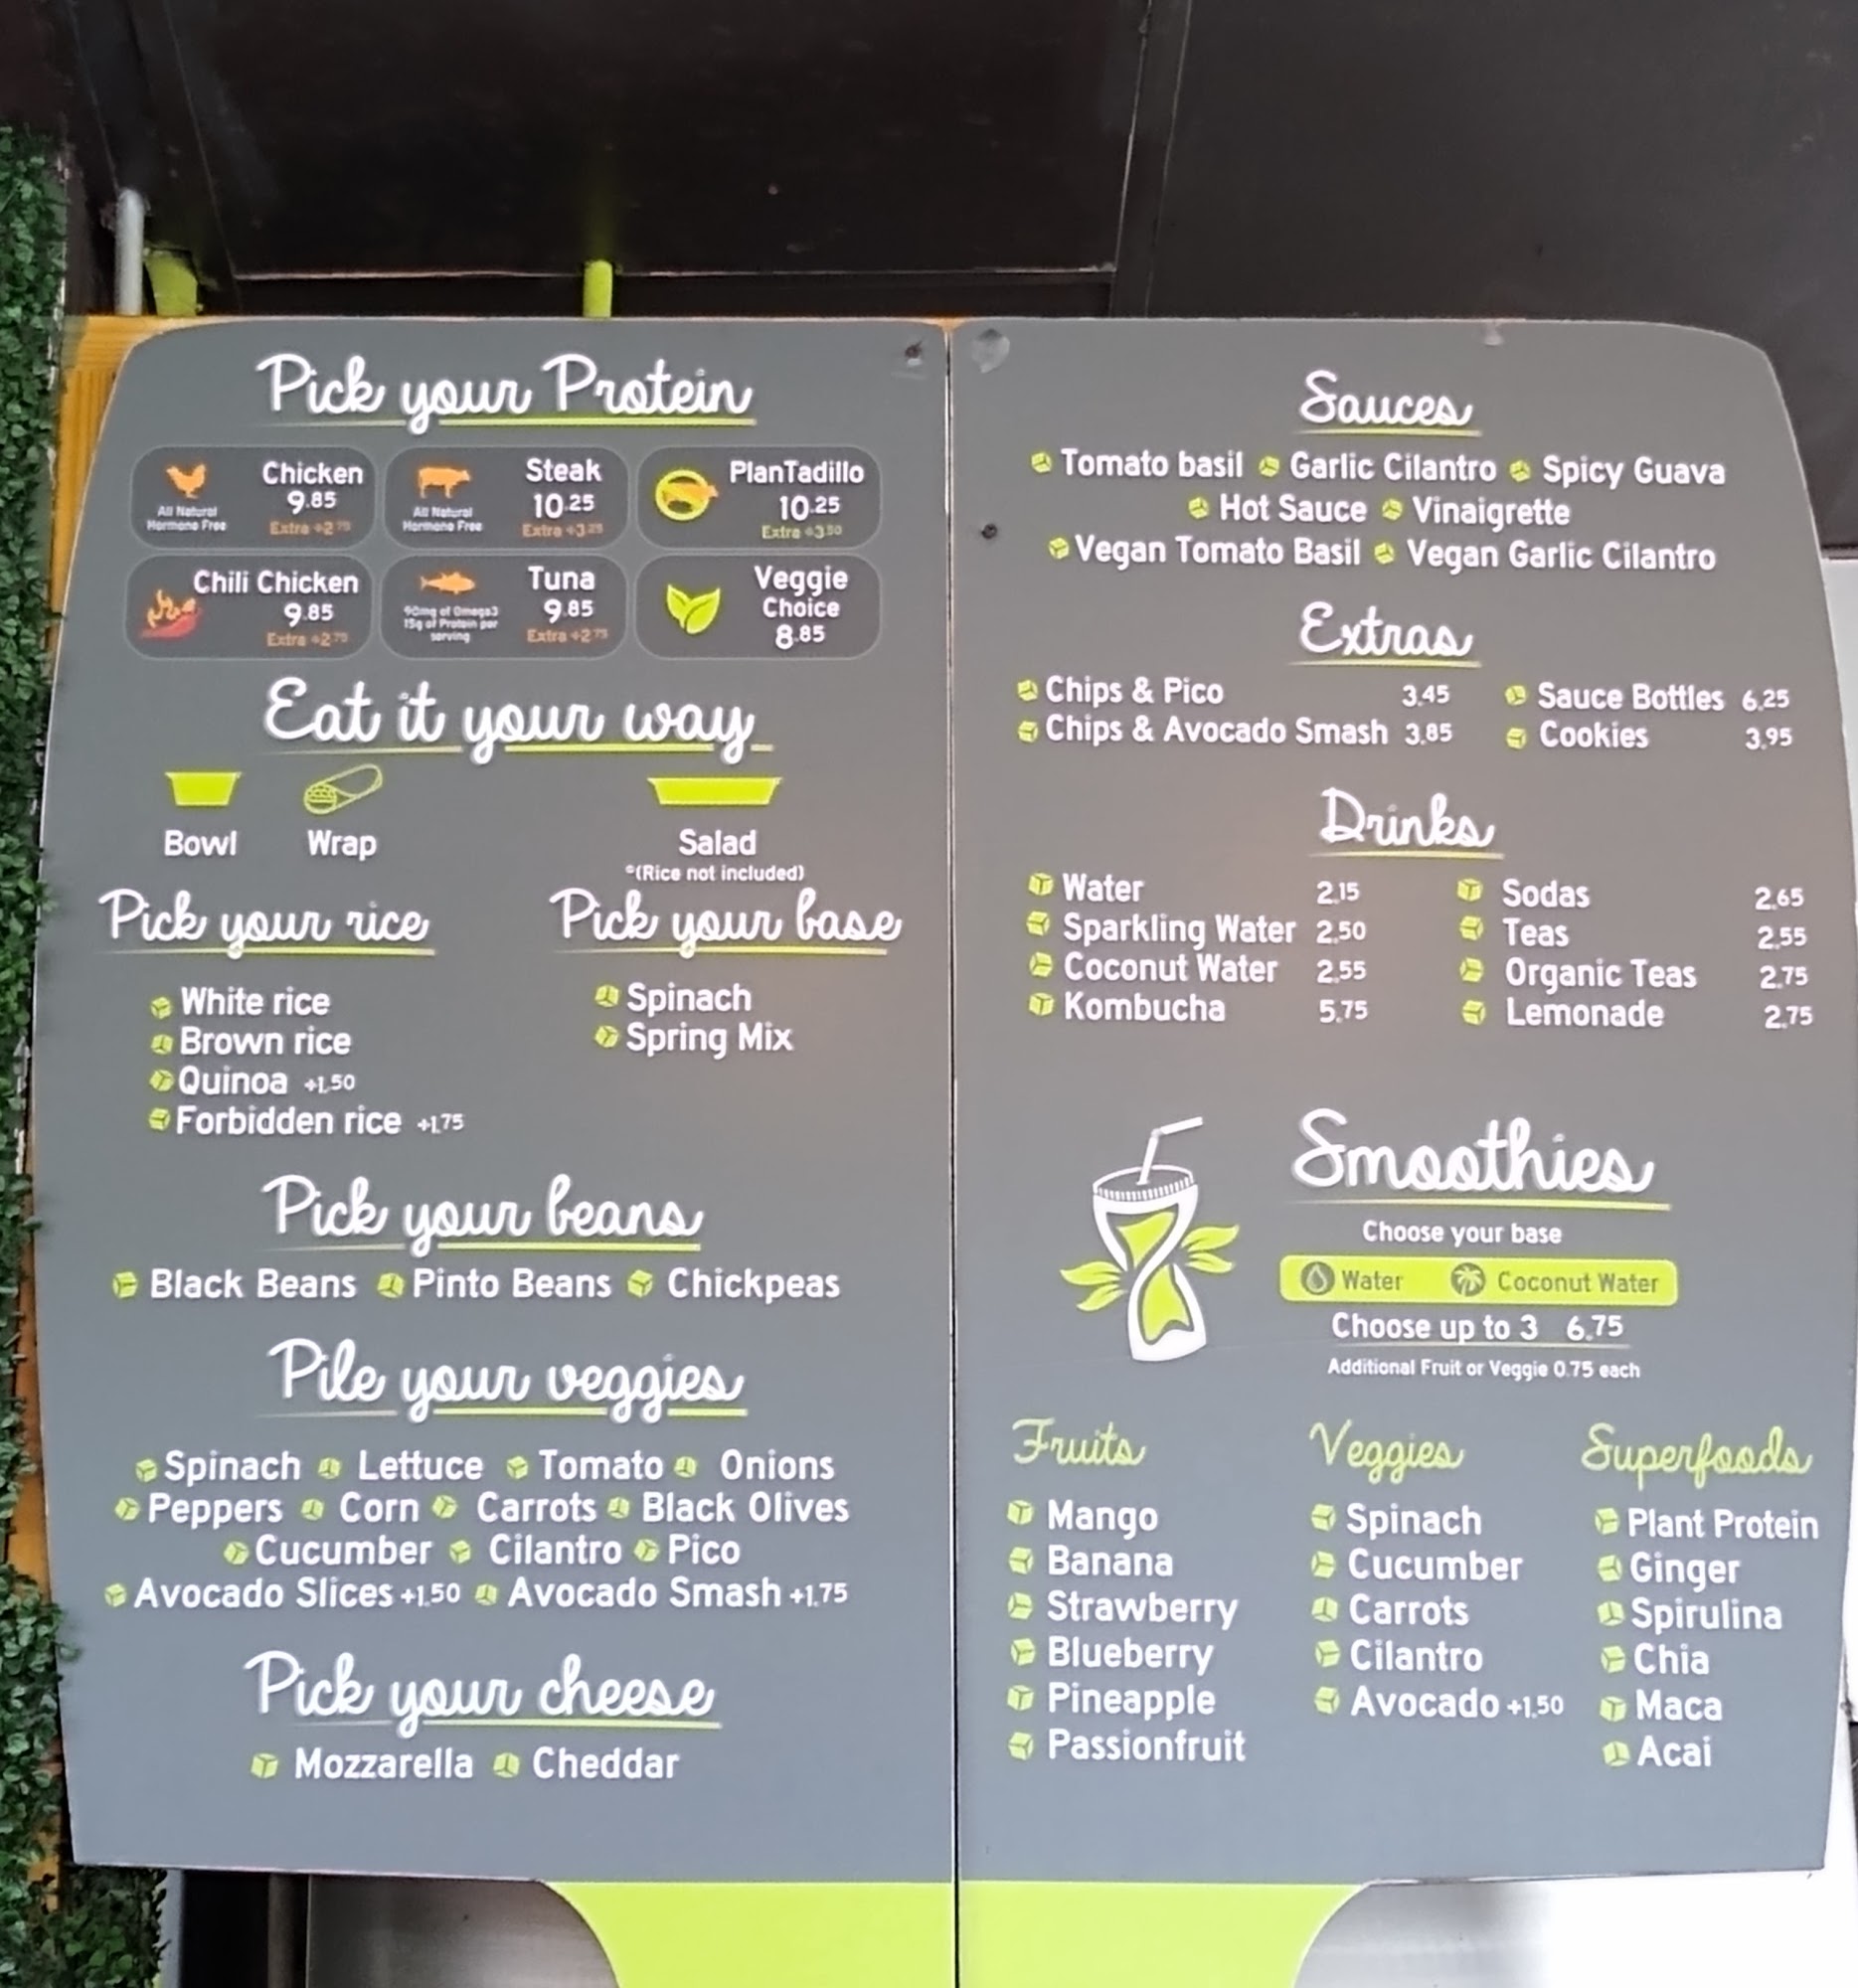 Pick your Protein
Chicken
9.85
All Natural
Hormone Free
Extra +2.75
Steak
10.25
All Natural
Hormone Free
Extra +3.25
PlanTadillo
10.25
Extra +3.50
Chili Chicken
9.85
Extra +2.75
Tuna
9.85
90mg of Omega3
15g of Protein per
serving
Extra +2.75
Veggie
Choice
8.85
Eat it your way
Bowl
Wrap
Salad
*(Rice not included)
Pick your rice
White rice
Brown rice
Quinoa +1.50
Forbidden rice +1.75
Pick your base
Spinach
Spring Mix
Pick your beans
Black Beans Pinto Beans Chickpeas
Pile your veggies
Spinach Lettuce Tomato Onions
Peppers Corn Carrots Black Olives
Cucumber Cilantro Pico
Avocado Slices +1.50 Avocado Smash +1.75
Pick your cheese
Mozzarella Cheddar
Sauces
Tomato basil Garlic Cilantro Spicy Guava
Hot Sauce Vinaigrette
Vegan Tomato Basil Vegan Garlic Cilantro
Extras
Chips & Pico 3.45
Chips & Avocado Smash 3.85
Sauce Bottles 6.25
Cookies 3.95
Drinks
Water 2.15
Sparkling Water 2.50
Coconut Water 2.55
Kombucha 5.75
Sodas 2.65
Teas 2.55
Organic Teas 2.75
Lemonade 2.75
Smoothies
Choose your base
Water Coconut Water
Choose up to 3 6.75
Additional Fruit or Veggie 0.75 each
Fruits
Mango
Banana
Strawberry
Blueberry
Pineapple
Passionfruit
Veggies
Spinach
Cucumber
Carrots
Cilantro
Avocado +1.50
Superfoods
Plant Protein
Ginger
Spirulina
Chia
Maca
Acai